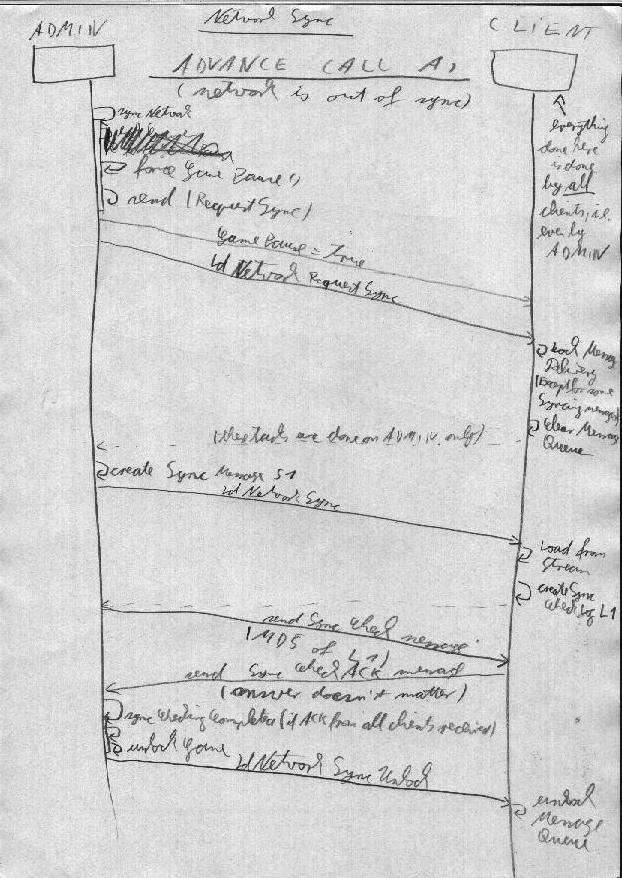 Network Sync
ADMIN
CLIENT
ADVANCE CALL
(network is out of sync)
sync Network
force Game Pause()
send (RequestSync)
everything
done here
is done
by all
clients, i.e.
even by
ADMIN
Game Pause = True
Id Network Request Sync
Lock Message
Delivery
(Except for some
Syncing messages)
Clear Message
Queue
(these tasks are done on ADMIN only)
create Sync Message S1
Id Network Sync
Load from
Stream
create Sync
Check Log L1
send Sync Check message
(MD5 of L1)
send Sync Check ACK message
(answer doesn't matter)
sync checking completed (if ACK from all clients received)
unlock Game
Id Network Sync Unlock
unlock
Message
Queue